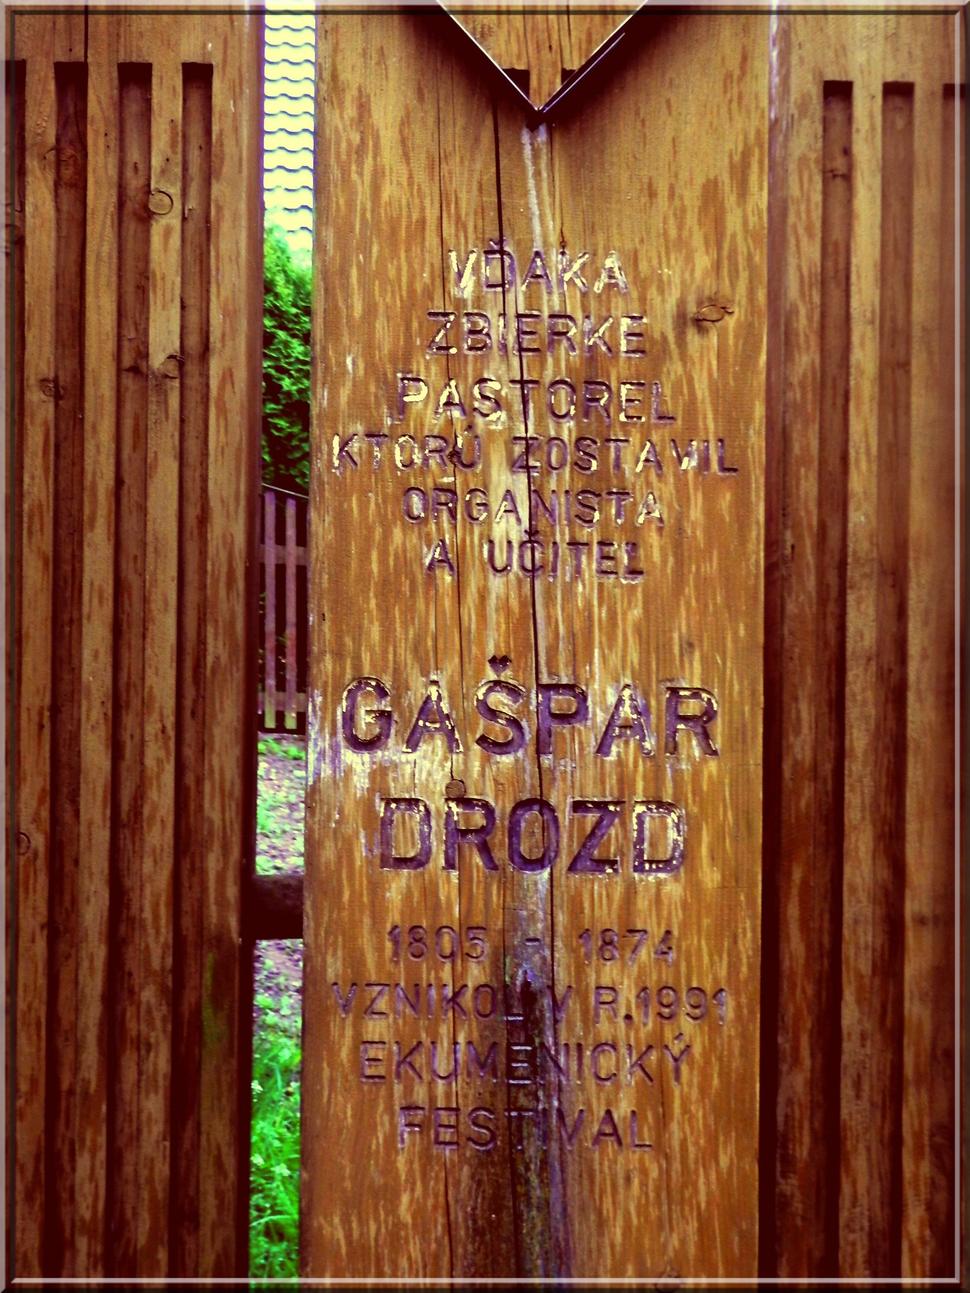 VĎAKA
ZBIERKE
PASTOREL
KTORÚ ZOSTAVIL
ORGANISTA
A UČITEĽ
GAŠPAR
DROZD
1805 - 1874
VZNIKOL V R.1991
EKUMENICKÝ
FESTIVAL